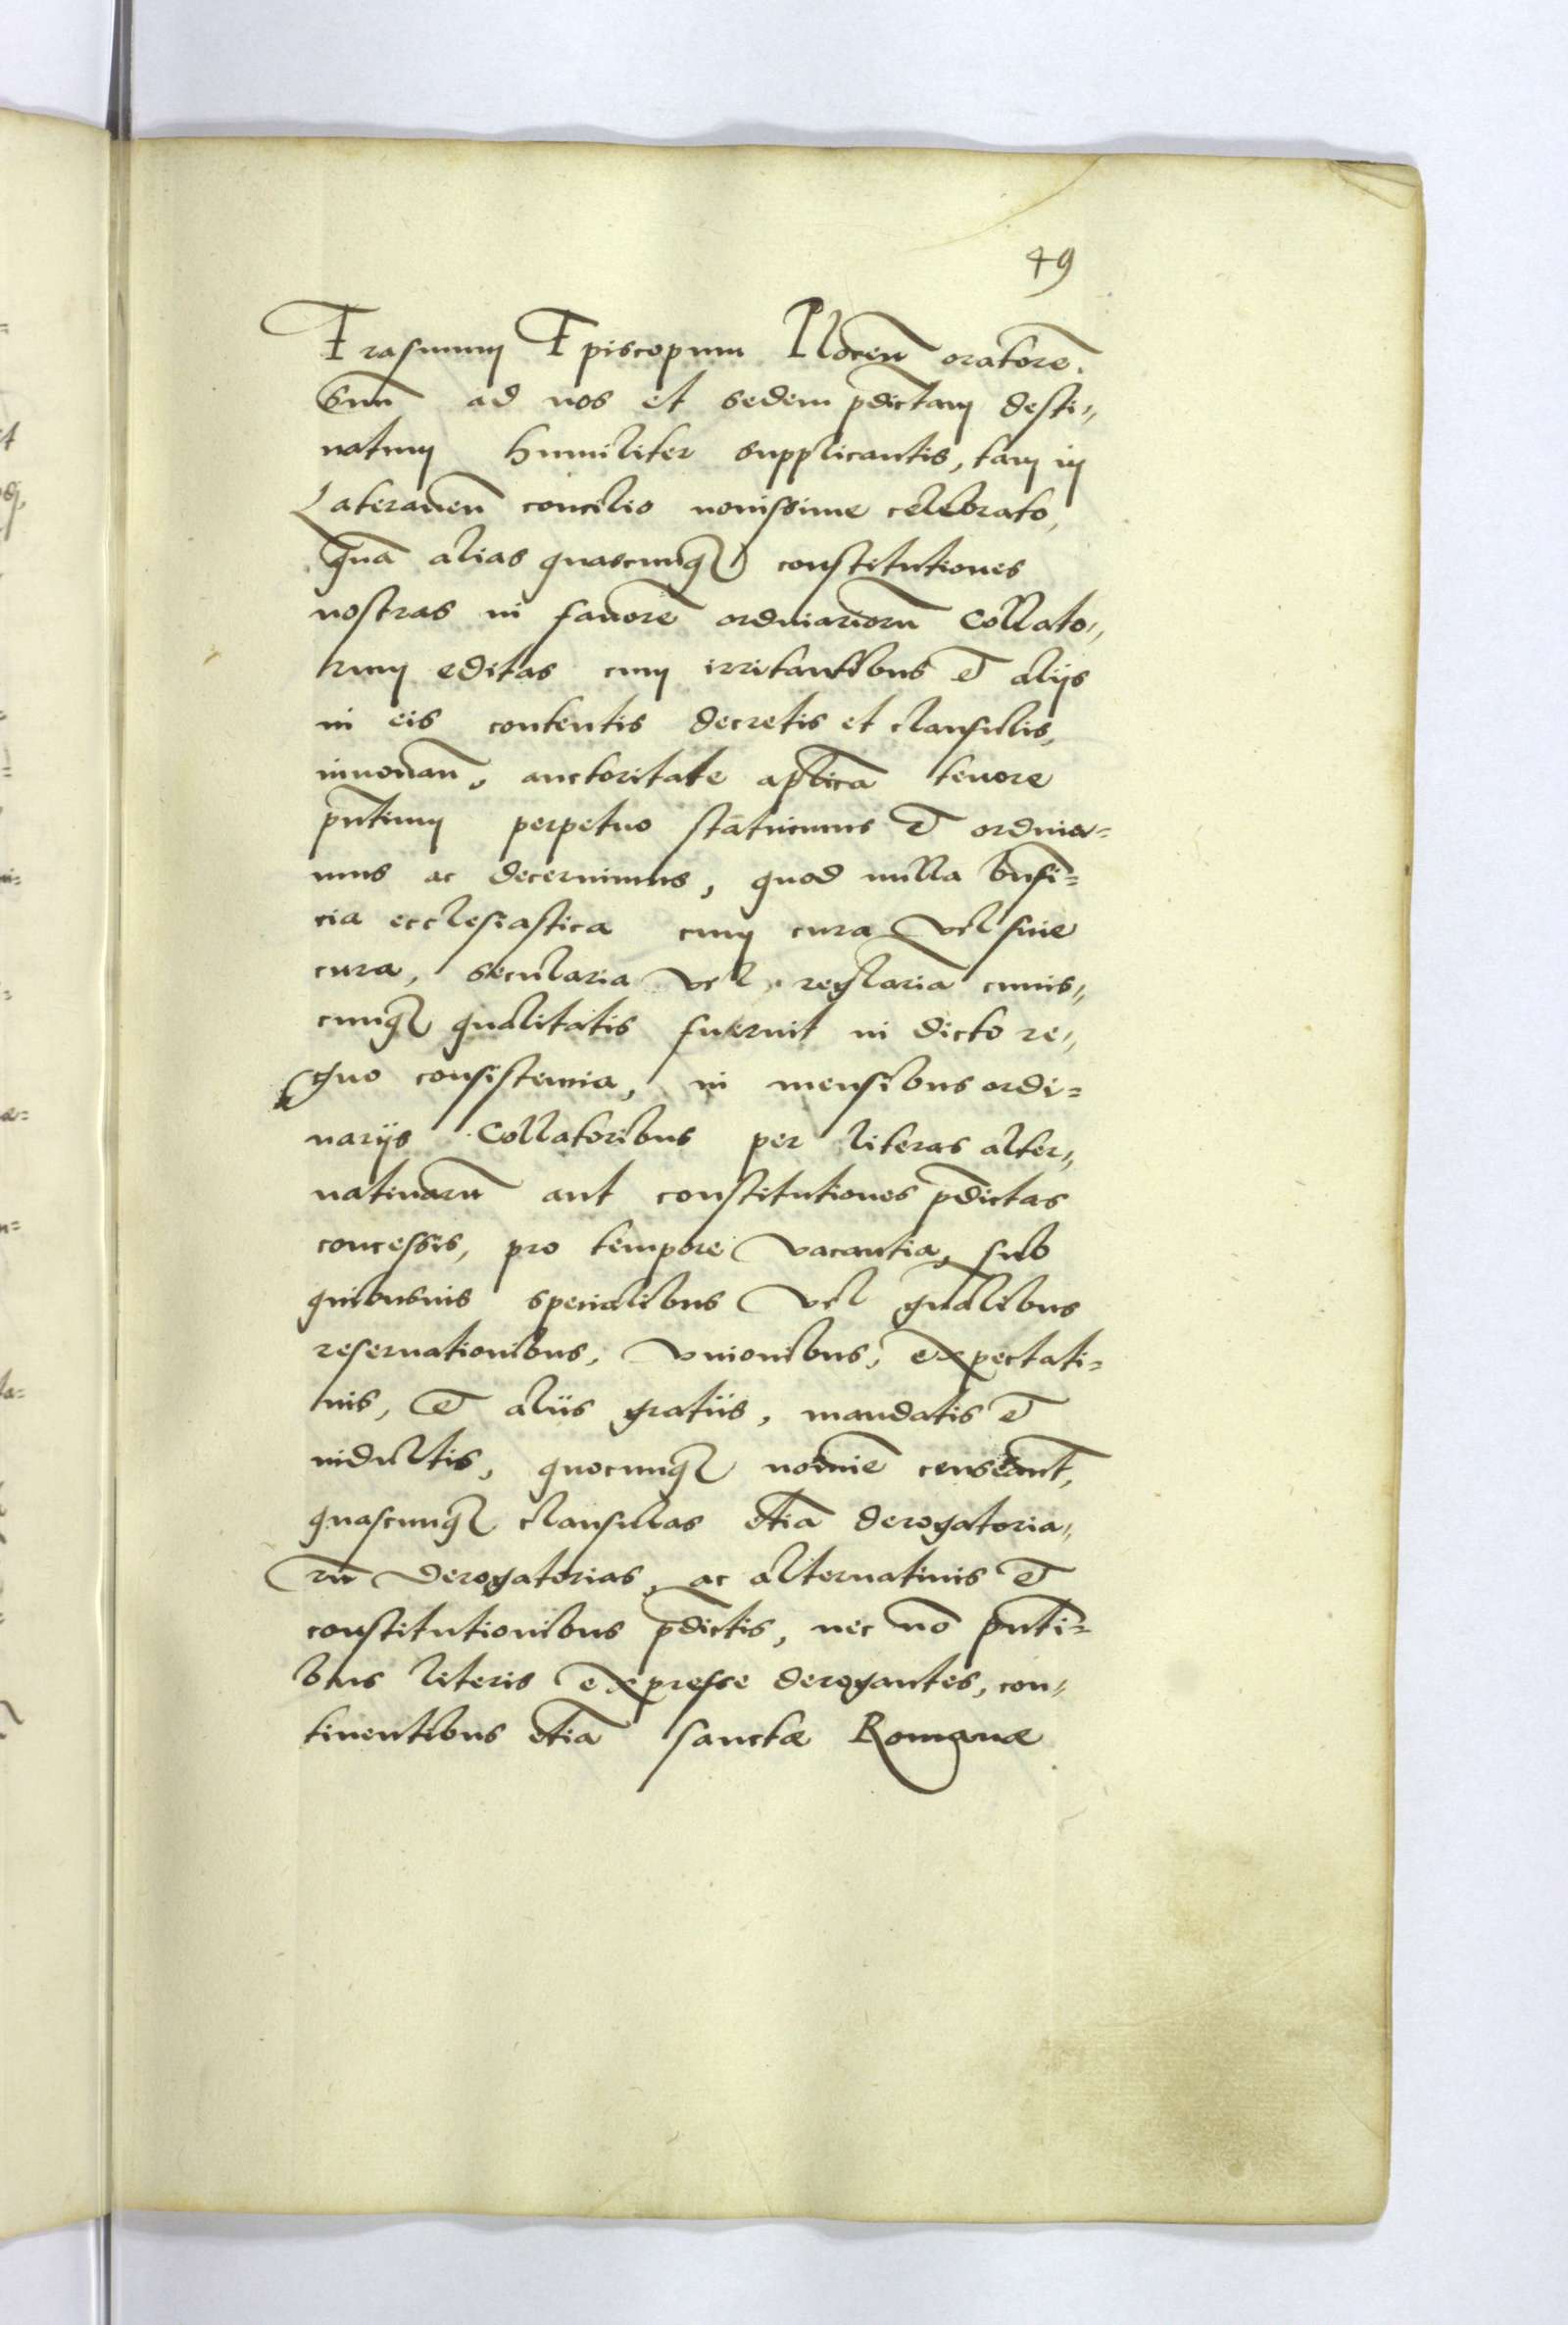 49
Erasmum Episcopum Plocen̄ oratorē
suū ad nos et sedem p̄dictam desti„
natum humiliter supplicantis, tam in
Lateranen̄ concilio nouissime celebrato,
quā alias quascunq constitutiones
nostras in fauorē ordinariorū Collato„
rum editas cum irritantibus et alijs
in eis contentis decretis et clausulis,
innouan̄, auctoritate ap̄lica tenore
pn̄tium perpetuo statuimus et ordina=
mus ac decernimus, quod nulla bn̄fi=
cia ecclesiastica cum cura vel sine
cura, secularia vel reglaria cuius„
cunq qualitatis fuerint in dicto re„
gno consistentia, in mensibus ordi=
narijs Collatoribus per literas alter„
natiuarū aut constitutiones p̄dictas
concessis, pro tempore vacantia, sub
quibusuis specialibus vel gn̄alibus
reseruationibus, vnionibus, expectati=
uis, et aliis gratiis, mandatis et
indultis, quocunq nomīe censeant̄,
quascunq clausulas etiā derogatoria„
rū derogatorias, ac alternatiuis et
constitutionibus p̄dictis, nec nō pn̄ti=
bus literis expresse derogantes, con„
tinentibus etiā sanctæ Romanæ